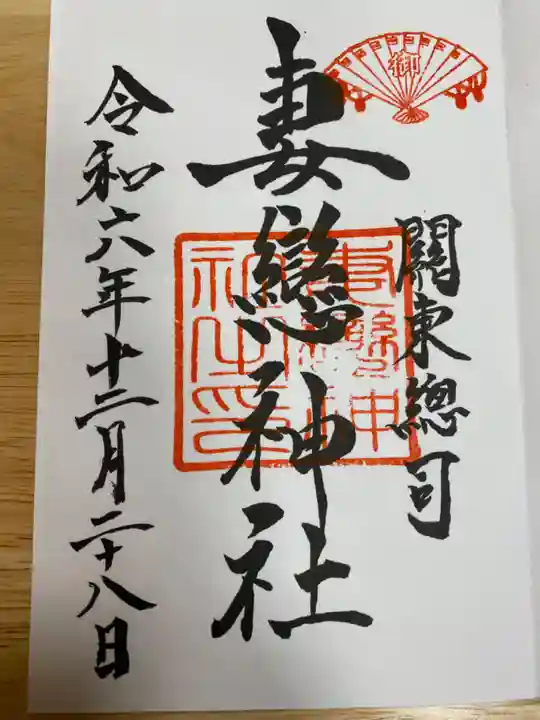 御
關東總司
妻戀神社
妻戀神社之印
令和六年十二月二十八日